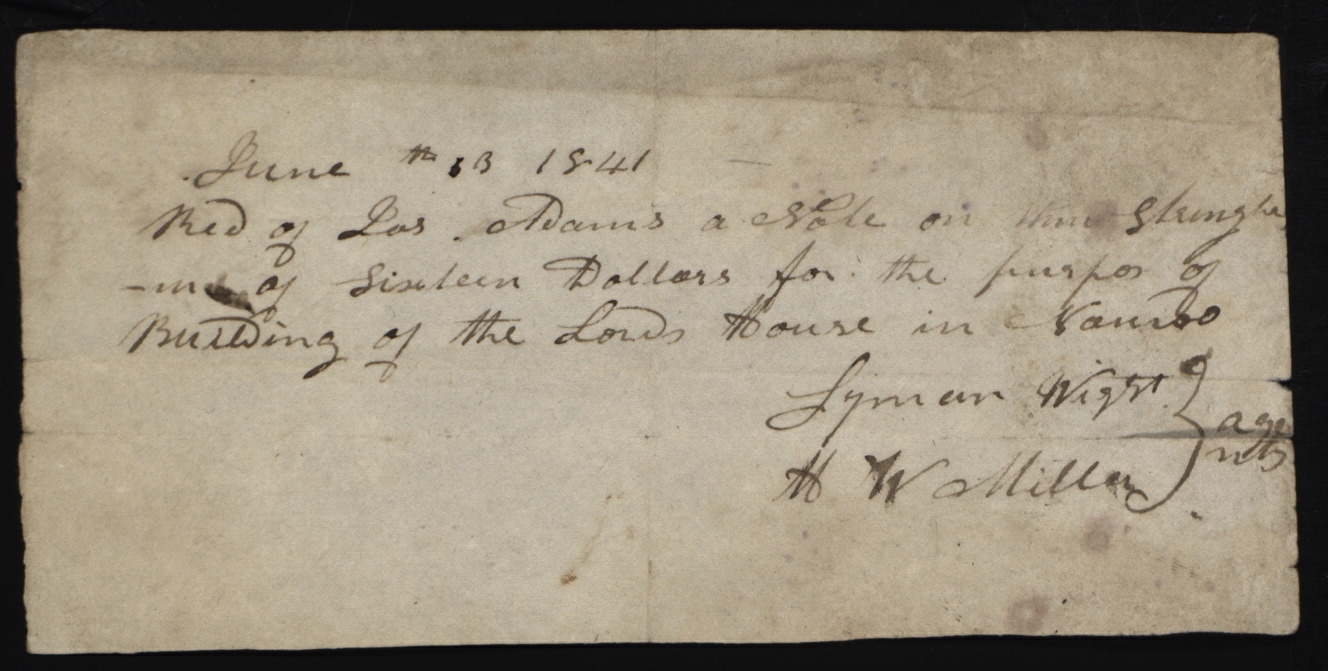 June th 13 1841
Recd of Jas. Adams a Note on
of Sixteen Dollars for the purpos of
Building of the Lords House in Nauvoo
Lyman Wight } age
H W Miller } nts